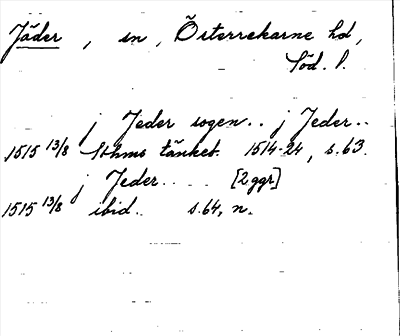 Jäder, sn, Österrekarne hd,
Söd. l.
j Jeder sogen.. j Jeder..
1515 13/8 Sthms tänkeb. 1514-24, s.63.
j Jeder.... [2 ggr]
1515 13/8 ibid. s.64, n.